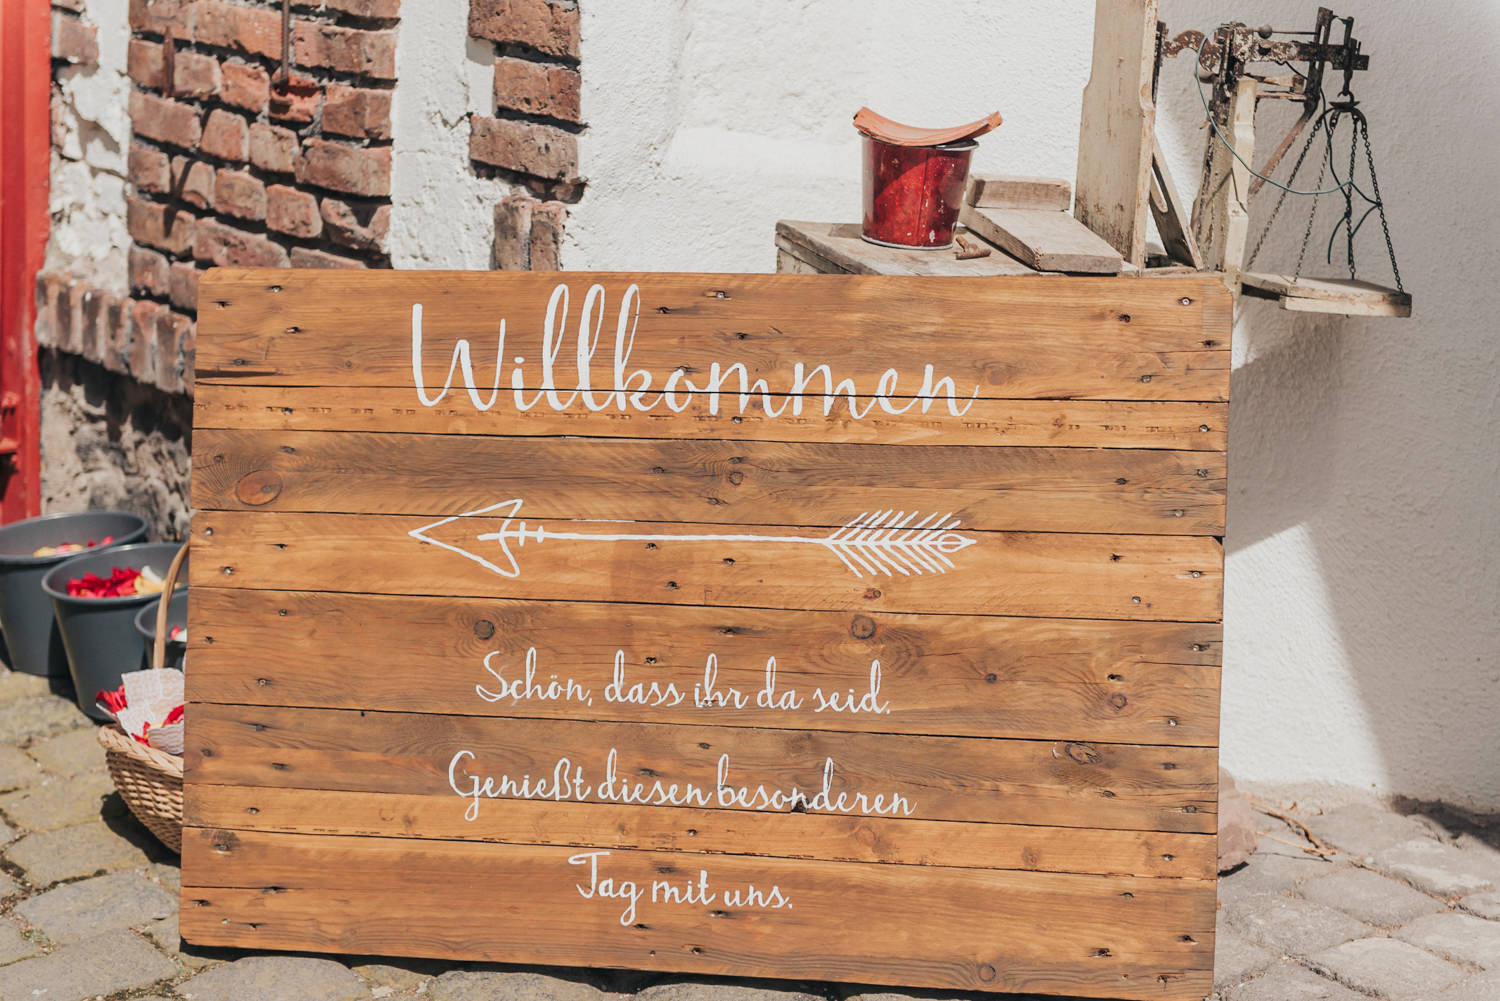 Willkommen
Schön, dass ihr da seid.
Genießt diesen besonderen
Tag mit uns.